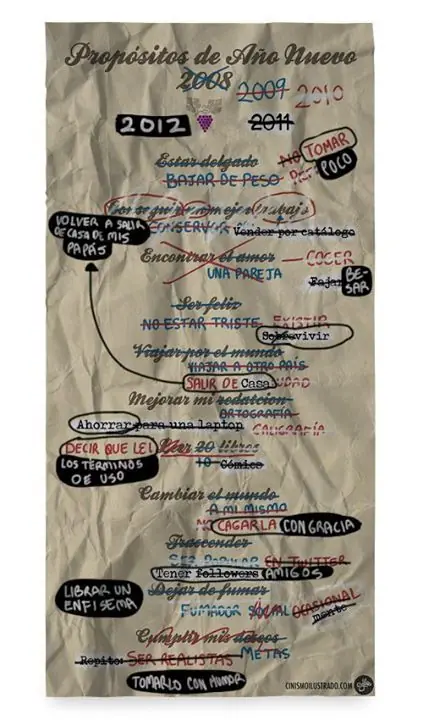 Propósitos de Año Nuevo
2008 2009 2010
2012 2011
Estar delgado NO TOMAR
BAJAR DE PESO POCO
Conseguir un mejor trabajo
VOLVER A SALIR DE CASA DE MIS PAPÁS
CONSERVAR Vender por catálogo
Encontrar el amor COGER
UNA PAREJA Fajar BESAR
Ser feliz
NO ESTAR TRISTE EXISTIR
Sobrevivir
Viajar por el mundo
VIAJAR A OTRO PAÍS
SALIR DE Casa CIUDAD
Mejorar mi redatcion
ORTOGRAFÍA
Ahorrar para una laptop CALIGRAFÍA
DECIR QUE LEÍ Leer 20 libros
LOS TÉRMINOS DE USO
10 Cómics
Cambiar el mundo
A MI MISMO
NO CAGARLA CON GRACIA
Trascender
SER POPULAR EN TWITTER
Tener followers AMIGOS
LIBRAR UN ENFISEMA
Dejar de fumar
FUMADOR SOCIAL OCASIONAL
Cumplir mis deseos
METAS
Repito: SER REALISTAS
TOMARLO CON HUMOR
CINISMOILUSTRADO.COM